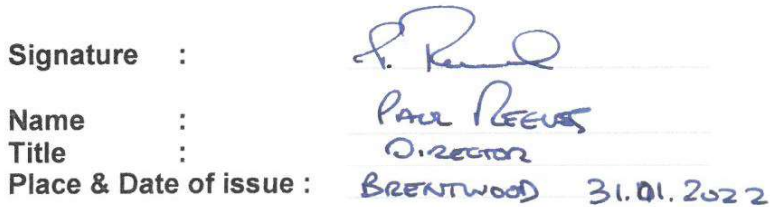 Signature :
Name : PAUL REEVES
Title : DIRECTOR
Place & Date of issue : BRENTWOOD 31.01.2022